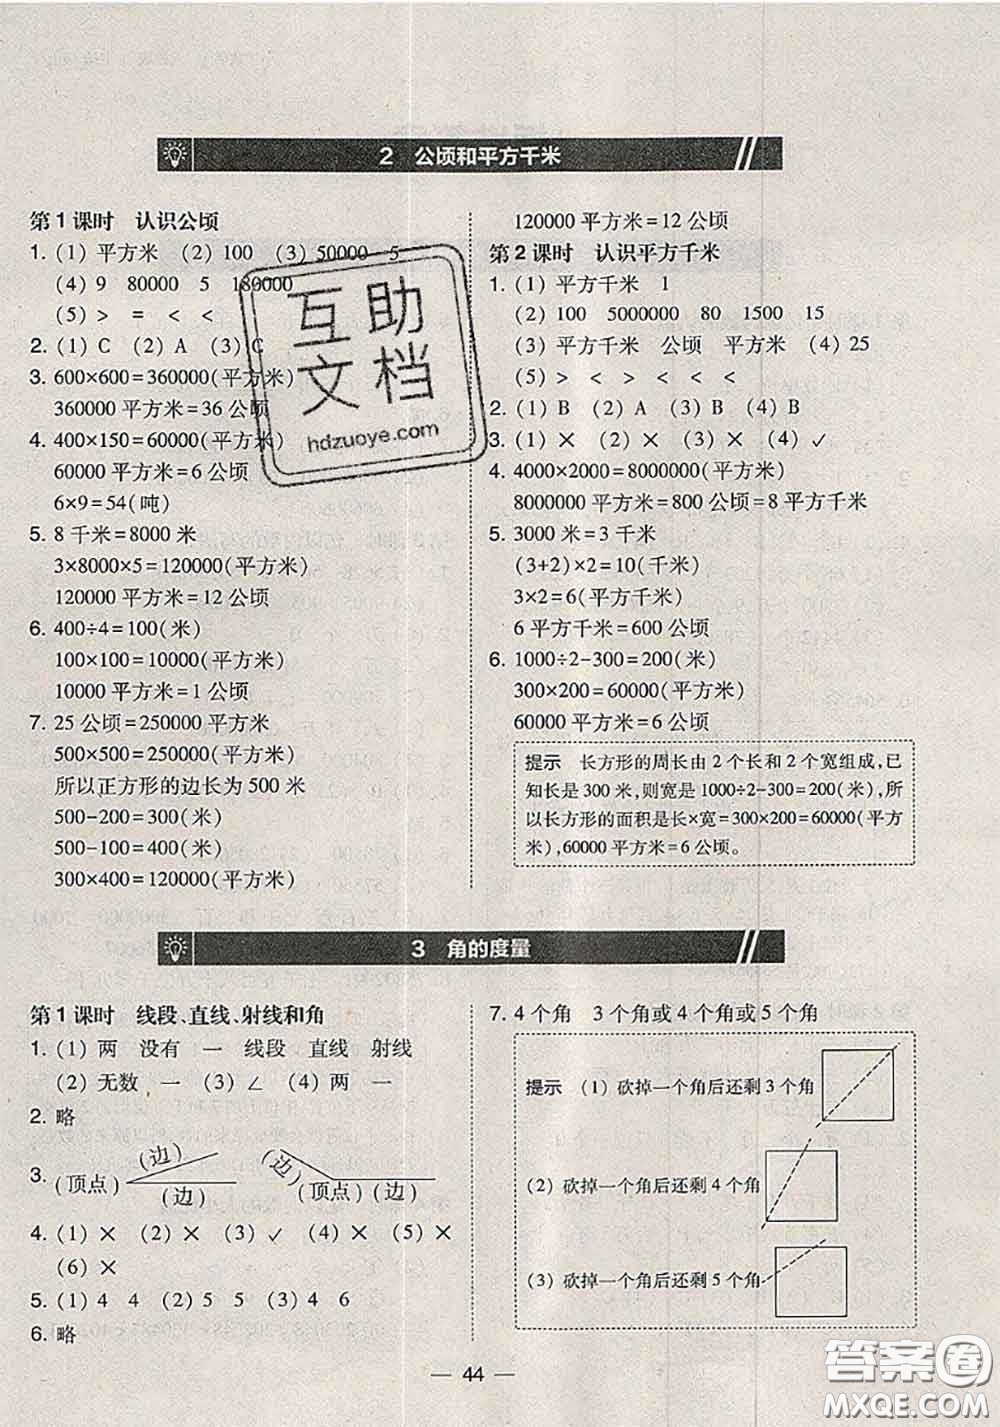 2 公顷和平方千米
第1课时 认识公顷
1. (1) 平方米 (2) 100 (3) 50000 5
(4) 9 80000 5 180000
(5) > = < <
2. (1) C (2) A (3) C
3. 600×600=360000(平方米)
360000平方米=36公顷
4. 400×150=60000(平方米)
60000平方米=6公顷
6×9=54(吨)
5. 8千米=8000米
3×8000×5=120000(平方米)
120000平方米=12公顷
6. 400÷4=100(米)
100×100=10000(平方米)
10000平方米=1公顷
7. 25公顷=250000平方米
500×500=250000(平方米)
所以正方形的边长为500米
500-200=300(米)
500-100=400(米)
300×400=120000(平方米)
120000平方米=12公顷
第2课时 认识平方千米
1. (1) 平方千米 1
(2) 100 5000000 80 1500 15
(3) 平方千米 公顷 平方米 (4) 25
(5) > < > < < <
2. (1) B (2) A (3) B (4) B
3. (1) × (2) × (3) × (4) ✓
4. 4000×2000=8000000(平方米)
8000000平方米=800公顷=8平方千米
5. 3000米=3千米
(3+2)×2=10(千米)
3×2=6(平方千米)
6平方千米=600公顷
6. 1000÷2-300=200(米)
300×200=60000(平方米)
60000平方米=6公顷
提示 长方形的周长由2个长和2个宽组成,已
知长是300米,则宽是1000÷2-300=200(米),所
以长方形的面积是长×宽=300×200=60000(平方
米),60000平方米=6公顷。
互助
文档
hdzuoye.com
3 角的度量
第1课时 线段、直线、射线和角
1. (1) 两 没有 一 线段 直线 射线
(2) 无数 一 (3) ∠ (4) 两 一
2. 略
3. (顶点) (边) (边) (边) (顶点) (边)
4. (1) × (2) × (3) ✓ (4) × (5) ×
(6) ×
5. (1) 4 4 (2) 5 5 (3) 4 6
6. 略
7. 4个角 3个角或4个角或5个角
提示 (1) 砍掉一个角后还剩3个角
(2) 砍掉一个角后还剩4个角
(3) 砍掉一个角后还剩5个角
44
答案圈
MXQE.COM